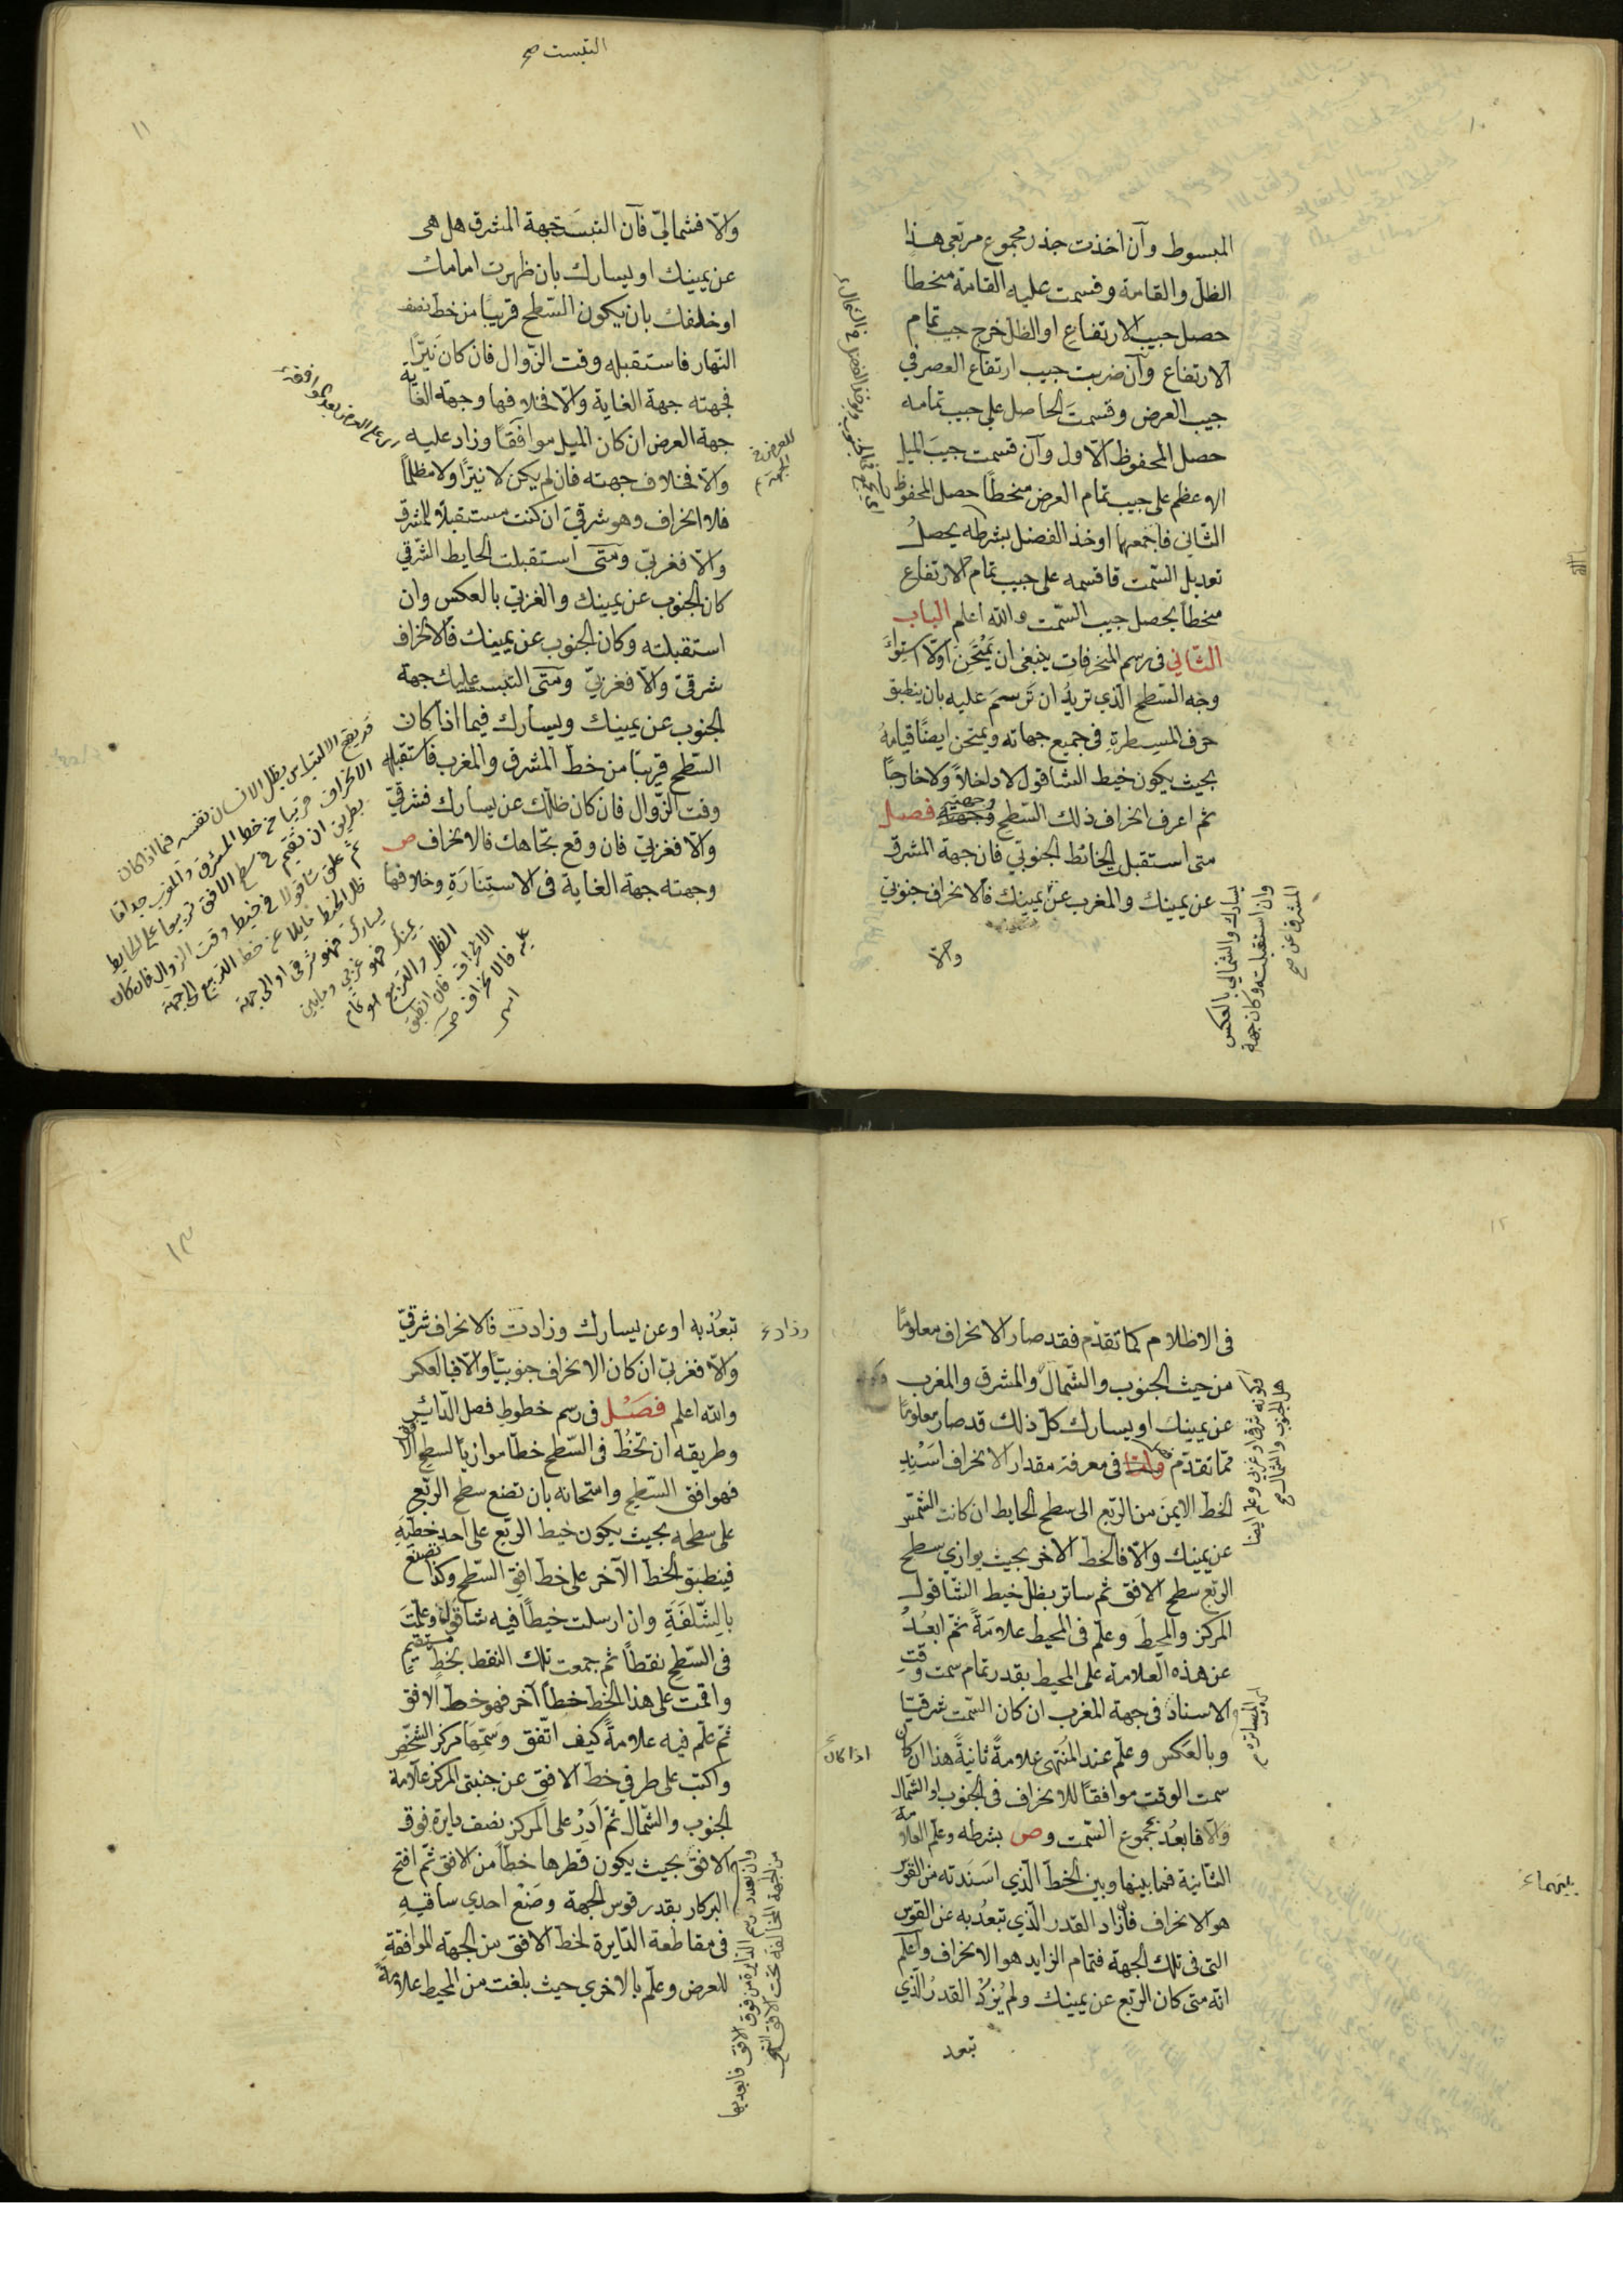 ١٠
المبسوط وآن اخذت جذر مجموع مربعى هذا
الظل والقامة وقسمت عليه القامة منحطا
حصل جيب الارتفاع او الظل خرج جيب تمام
الارتفاع وآن ضربت جيب ارتفاع العصر في
جيب العرض وقسمت الحاصل على جيب تمامه
حصل المحفوظ الاول وآن قسمت جيب الميل
الاعظم على جيب تمام العرض منحطا حصل المحفوظ
الثاني فاجمعهما او خذ الفضل بشرطه يحصل
تعديل السمت فاقسمه على جيب تمام الارتفاع
منحطا يحصل جيب السمت والله اعلم الباب
الثاني في رسم المنحرفات ينبغى ان يمتحن اولا استواء
وجه السطح الذي تريد ان ترسم عليه بان ينطبق
حرف المسطرة في جميع جهاته ويمتحن ايضا قيامه
بحيث يكون خيط الشاقول لا داخلا ولا خارجا
ثم اعرف انحراف ذلك السطح وجهته فصل
متى استقبل الحائط الجنوبي فان جهة المشرق
عن يمينك والمغرب عن يمينك فالانحراف جنوبي
والا
يسارك والشمالي بالعكس
وان استقبلته وكان جهة
المشرق عن صح
التبست صح
١١
والا فشمالي فآن التبست جهة المشرق هل هى
عن يمينك او يسارك بان ظهرت امامك
او خلفك بان يكون السطح قريبا من خط نصف
النهار فاستقبله وقت الزوال فان كان نيرا
فجهته جهة الغاية والا فخلافها وجهة الغاية
جهة العرض ان كان الميل موافقا وزاد عليه
والا فخلاف جهته فان لم يكن لا نيرا ولا مظلما
فلا انحراف وهو شرقي ان كنت مستقبلا للمشرق
والا فغربي ومتى استقبلت الحايط الشرقي
كان الجنوب عن يمينك والغربي بالعكس وان
استقبلته وكان الجنوب عن يمينك فالانحراف
شرقي والا فغربي ومتى التبست عليك جهة
الجنوب عن يمينك ويسارك فيما اذا كان
السطح قريبا من خط المشرق والمغرب فاستقبله
وقت الزوال فان كان ظلك عن يسارك فشرقي
والا فغربي فان وقع تجاهك فالانحراف ص
وجهته جهة الغاية في الاستنارة وخلافها
قد يقع الالتباس بظل الانسان نفسه فيما اذا كان
الانحراف قريبا من خط المشرق والمغرب جدا فا
بطريق ان تقيم في سطح الافق تربيعا على الحايط
ثم علق شاقولا في خيط وقت الزوال فان كان
ظل الخيط مايلا عن خط التربيع الى جهة
يسارك فهو شرقي او الى جهة
يمينك فهو غربي ومابين
الظل والتربيع هو تمام
الانحراف فان انطبق
عليه فالانحراف ص
١٢
في الاظلام كما تقدم فقد صار الانحراف معلوما
من حيث الجنوب والشمال والمشرق والمغرب
عن يمينك او يسارك كل ذلك قد صار معلوما
مما تقدم واما في معرفة مقدار الانحراف اسند
الخط الايمن من الربع الى سطح الحايط ان كانت الشمس
عن يمينك والا فالخط الاخر بحيث يوازي سطح
الربع سطح الافق ثم ساتر بظل خيط الشاقول
المركز والمحيط وعلم في المحيط علامة ثم ابعد
عن هذه العلامة على المحيط بقدر تمام سمت وقت
الاسناد في جهة المغرب ان كان السمت شرقيا
وبالعكس وعلم عند المنتهى علامة ثانية هذا ان كان
سمت الوقت موافقا للانحراف في الجنوب او الشمال
والا فابعد بمجموع السمت وص بشرطه وعلم العلامة
الثانية فما بينها وبين الخط الذي اسندته من القوس
هو الانحراف فان زاد القدر الذي تبعد به عن القوس
التى في تلك الجهة فتمام الزايد هو الانحراف واعلم
انه متى كان الربع عن يمينك ولم يزد القدر الذي
تبعد
اذا كان
١٣
تبعد به او عن يسارك وزادت فالانحراف شرقي
والا فغربي ان كان الانحراف جنوبيا والا فبالعكس
والله اعلم فصل في رسم خطوط فصل الداير
وطريقه ان تخط في السطح خطا موازيا لسطح الافق
فهو افق السطح وامتحانه بان تضع سطح الربع
على سطحه بحيث يكون خيط الربع على احد خطيه
فينطبق الخط الآخر على خط افق السطح وكذا تصنع
بالشلفة وان ارسلت خيطا فيه شاقول وعلمت
في السطح نقطا ثم جمعت تلك النقط بخط مستقيم
واقمت على هذا الخط خطا آخر فهو خط الافق
ثم علم فيه علامة كيف اتفق وسمها مركز الشخص
واكتب على طرفي خط الافق عن جنبتي المركز علامة
الجنوب والشمال ثم ادر على المركز نصف دايرة فوق
الافق بحيث يكون قطرها خطا من الافق ثم افتح
البركار بقدر قوس الجهة وضع احدي ساقيه
في مقاطعة الدايرة لخط الافق من الجهة الموافقة
للعرض وعلم بالاخري حيث بلغت من المحيط علامة